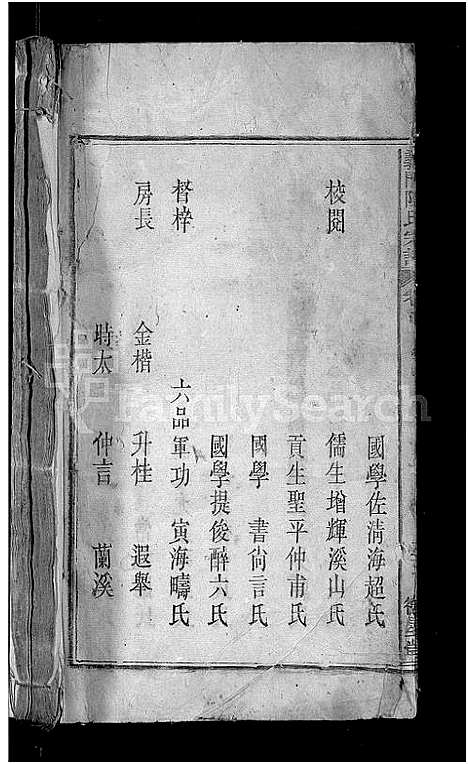 義門陳氏宗譜
國學佐清海超氏
校閱 儒生增輝溪山氏
貢生聖平仲甫氏
國學 書尚言氏
國學提俊醉六氏
督梓 六品軍功 寅海疇氏
房長 金楷 升桂 遐舉
時太 仲言 蘭溪
FamilySearch